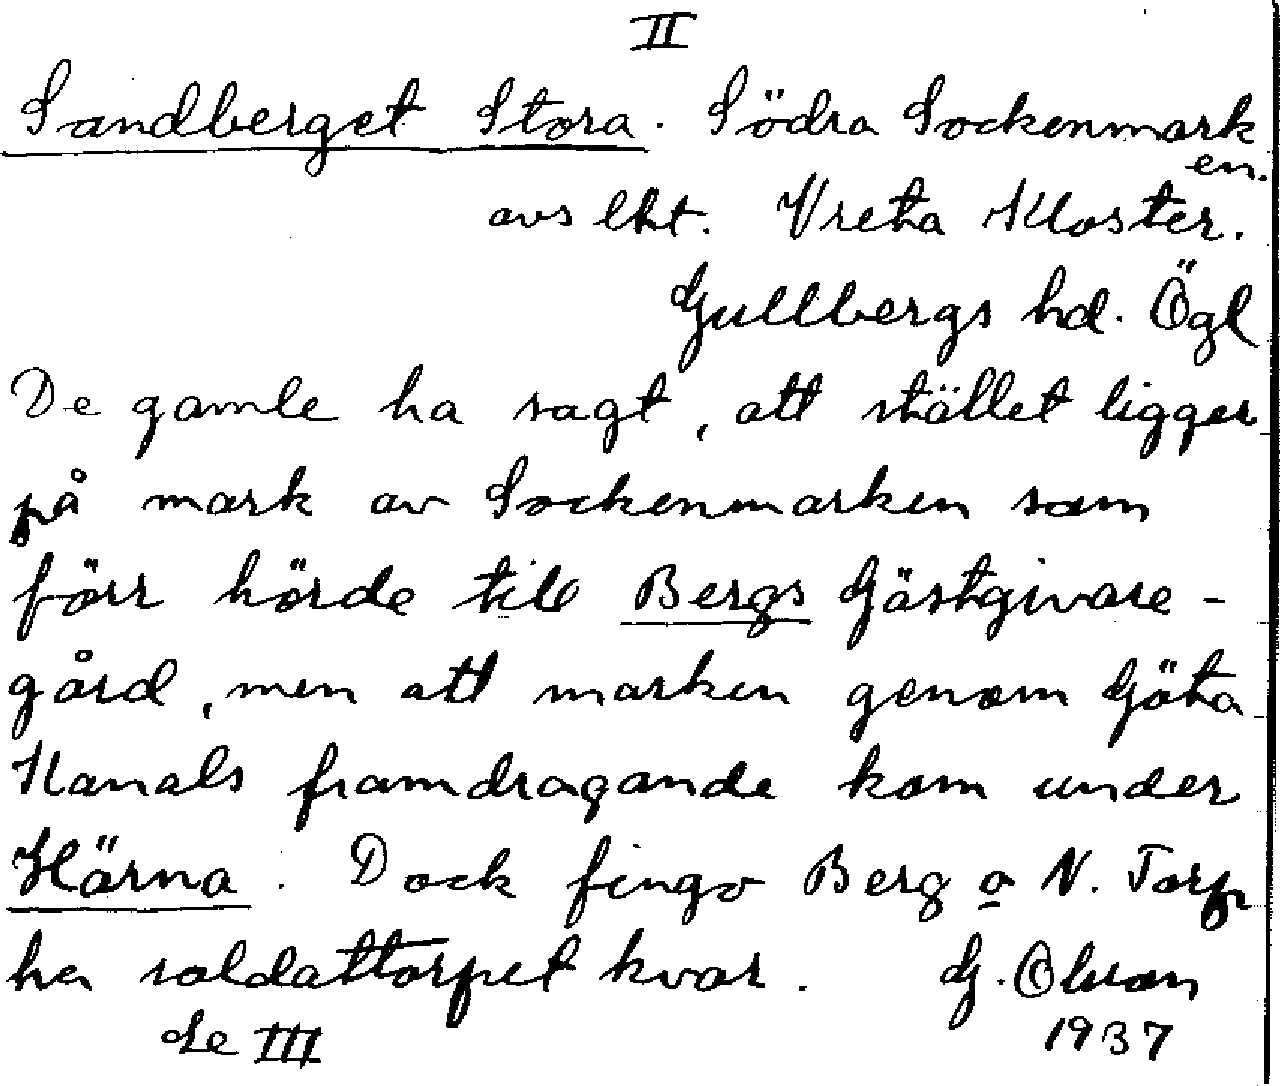 II
Sandberget Stora. Södra Sockenmark
en.
avs lht. Vreta Kloster.
Gullbergs hd. Ögl
De gamle ha sagt, att stället ligger
på mark av Sockenmarken som
förr hörde till Bergs Gästgivare-
gård, men att marken genom Göta
Kanals framdragande kom under
Härna. Dock fingo Berg o N. Torp
ha soldattorpet kvar. G. Olsson
Se III 1937